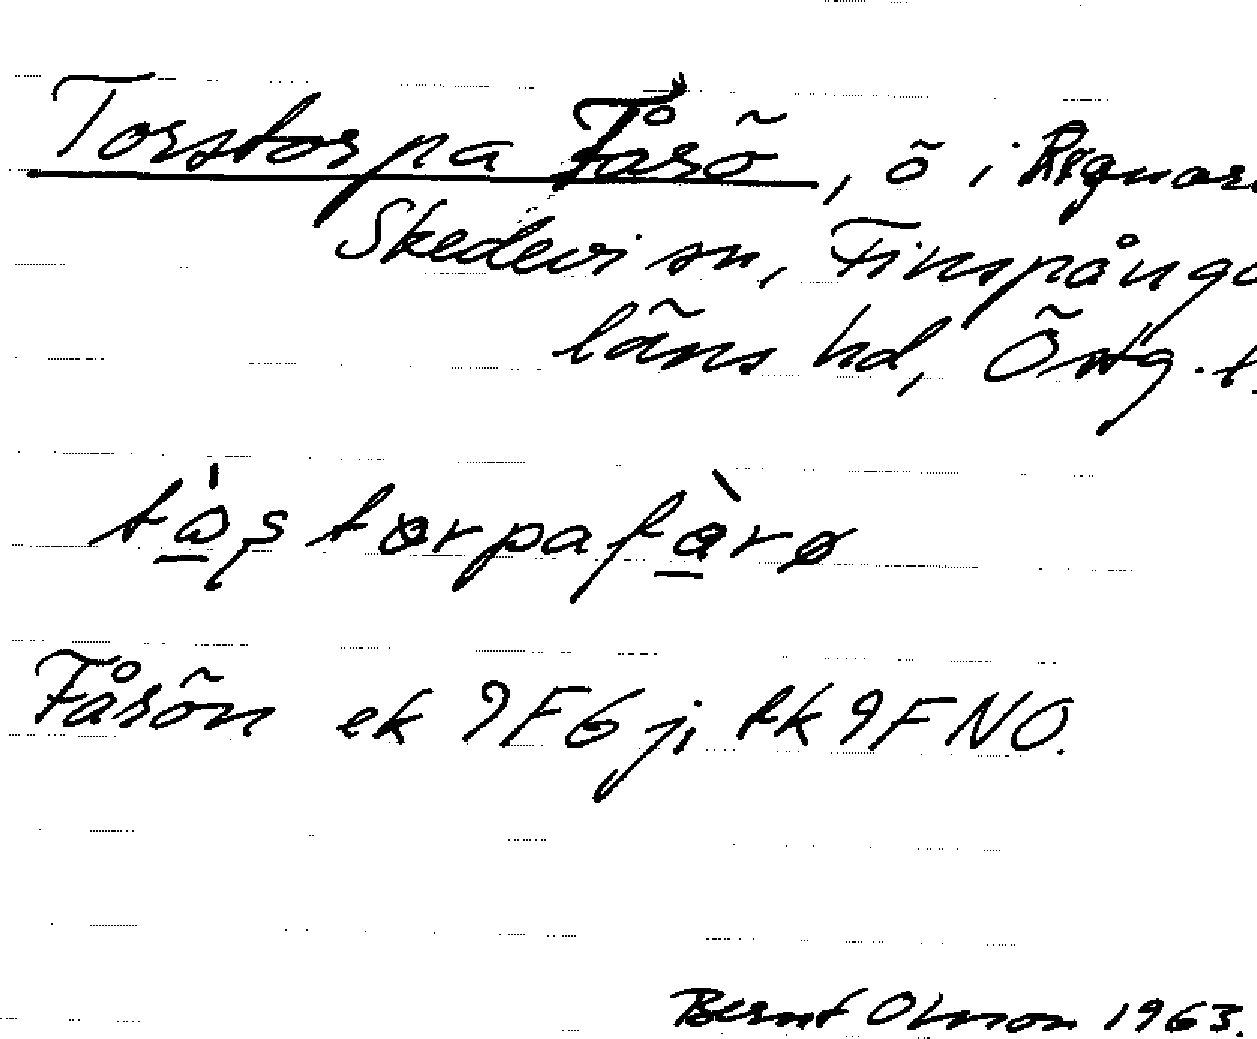 Torstorpa Fårö, ö i Regnar
Skedevi sn, Finspånga
läns hd, Östg. l.
tåstorpafårø
Fårön ek 9F6j, tk 9FNO.
Bernt Olsson 1963.